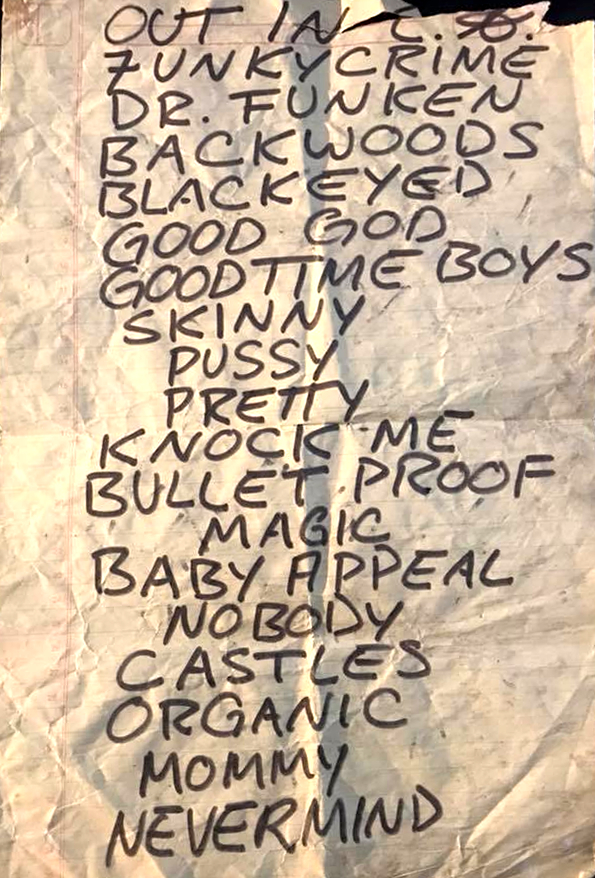 OUT IN L.A.
FUNKYCRIME
DR. FUNKEN
BACKWOODS
BLACKEYED
GOOD GOD
GOODTIME BOYS
SKINNY
PUSSY
PRETTY
KNOCK ME
BULLET PROOF
MAGIC
BABY APPEAL
NOBODY
CASTLES
ORGANIC
MOMMY
NEVERMIND